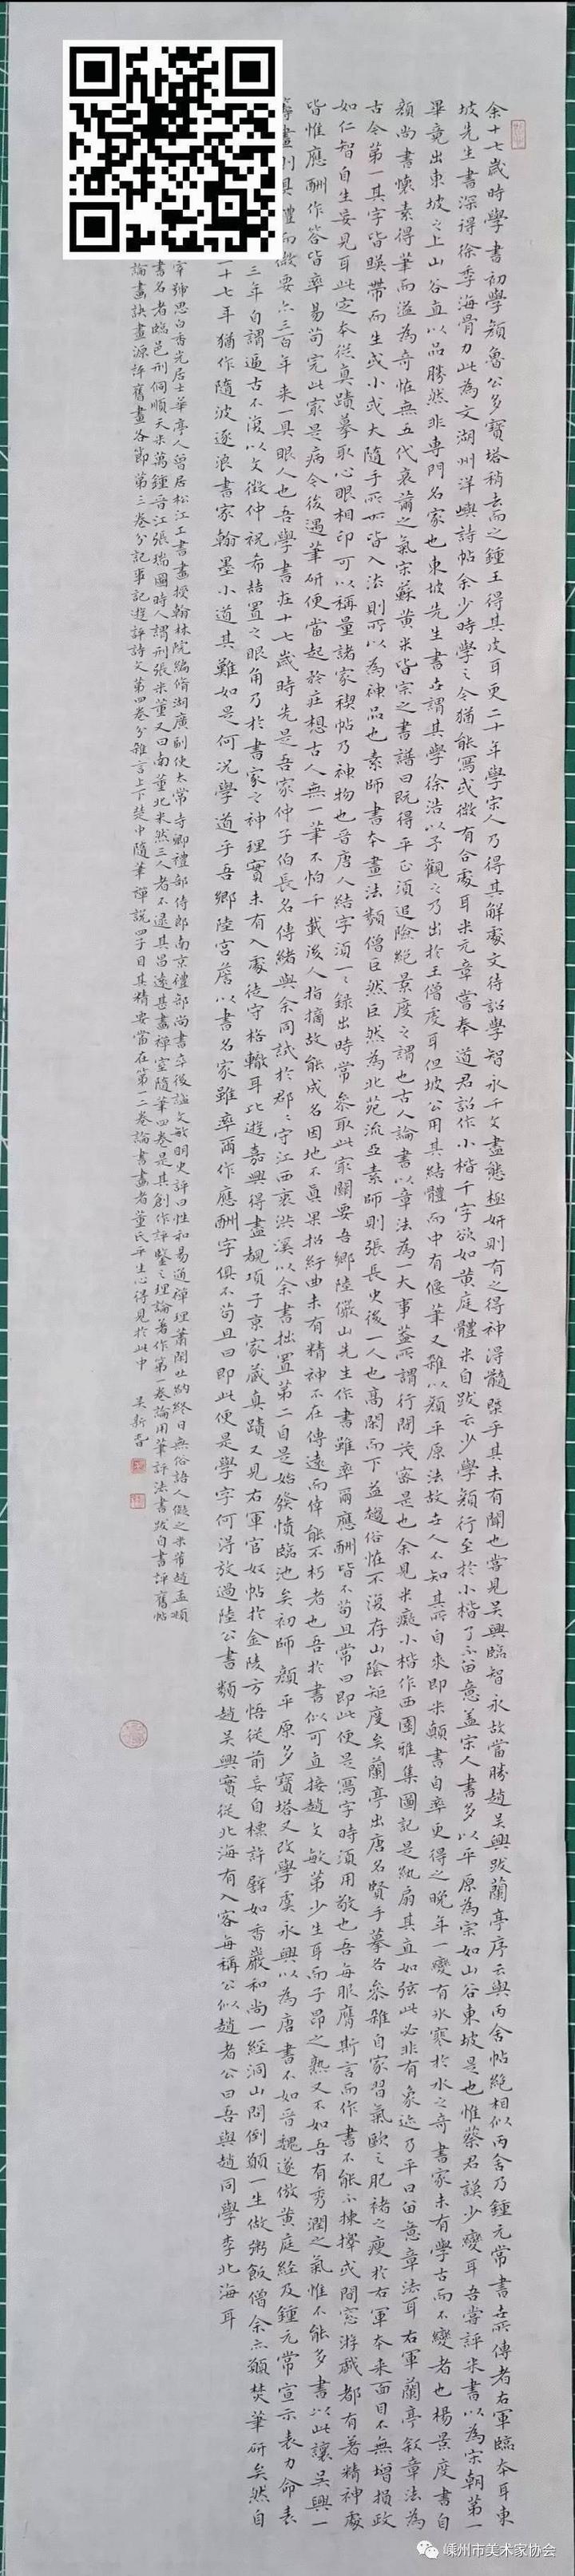 余十七歲時學書初學顏魯公多寶塔稍去而之鍾王得其皮耳更二十年學宋人乃得其解處文待詔學智永千文盡態極妍則有之得神得髓槩乎其未有聞也嘗見吳興臨智永故當勝趙吳興跋蘭亭序云與丙舍帖絕相似丙舍乃鍾元常書世所傳者右軍臨本耳東
坡先生書深得徐季海骨力此為文湖州洋嶼詩帖余少時學之今猶能寫或微有合處耳米元章嘗奉道君詔作小楷千字欲如黃庭體米自跋云少學顏行至於小楷了不留意蓋宋人書多以平原為宗如山谷東坡是也惟蔡君謨少變耳吾嘗評米書以為宋朝第一
畢竟出東坡之上山谷直以品勝然非專門名家也東坡先生書世謂其學徐浩以予觀之乃出於王僧虔耳但坡公用其結體而中有偃筆又雜以顏平原法故世人不知其所自來即米顛書自率更得之晚年一變有冰寒於水之奇書家未有學古而不變者也楊景度書自
顏尚書懷素得筆而溢為奇怪無五代衰苶之氣宋蘇黃米皆宗之書譜曰既得平正須追險絕景度之謂也古人論書以章法為一大事蓋所謂行間茂密是也余見米癡小楷作西園雅集圖記是紈扇其直如弦此必非有象迹乃平日留意章法耳右軍蘭亭敘章法為
古今第一其字皆暎帶而生或小或大隨手所如皆入法則所以為神品也素師書本畫法類僧巨然巨然為北苑流亞素師則張長史後一人也高閑而下益趨俗怪不復存山陰矩度矣蘭亭出唐名賢手摹各參雜自家習氣歐之肥褚之瘦於右軍本來面目不無增損政
如仁智自生妄見耳此定本從真蹟摹取心眼相印可以稱量諸家禊帖乃神物也晉唐人結字須一一錄出時常參取此最關要吾鄉陸儼山先生作書雖率爾應酬皆不苟且常曰即此便是寫字時須用敬也吾每服膺斯言而作書不能不揀擇或閒窓游戲都有著精神處
皆惟應酬作答皆率易苟完此最是病今後遇筆研便當起矜莊想古人無一筆不怕千載後人指摘故能成名因地不真果招紆曲未有精神不在傳遠而偉能不朽者也吾於書似可直接趙文敏第少生耳而子昂之熟又不如吾有秀潤之氣惟不能多書以此讓吳興一
籌畫則具體而微要亦三百年來一具眼人也吾學書在十七歲時先是吾家仲子伯長名傳緒與余同試於郡郡守江西衷洪溪以余書拙置第二自是始發憤臨池矣初師顏平原多寶塔又改學虞永興以為唐書不如晉魏遂倣黃庭經及鍾元常宣示表力命表
三年自謂逼古不復以文徵仲祝希喆置之眼角乃於書家之神理實未有入處徒守格轍耳比遊嘉興得盡覩項子京家藏真蹟又見右軍官奴帖於金陵方悟從前妄自標許譬如香嚴和尚一經洞山問倒願一生做粥飯僧余亦願焚筆研矣然自
一十七年猶作隨波逐浪書家翰墨小道其難如是何況學道乎吾鄉陸宮詹以書名家雖率爾作應酬字俱不苟且曰即此便是學字何得放過陸公書類趙吳興實從北海有入客每稱公似趙者公曰吾與趙同學李北海耳
宰號思白香光居士華亭人曾居松江工書畫授翰林院編脩湖廣副使太常寺卿禮部侍郎南京禮部尚書卒後謚文敏明史評曰性和易通禪理蕭閒吐納終日無俗語人儗之米芾趙孟頫
書名者臨邑刑侗順天米萬鍾晉江張瑞圖時人謂刑張米董又曰南董北米然三人者不逮其昌遠甚畫禪室隨筆四卷是其創作評鑒之理論著作第一卷論用筆評法書跋自書評舊帖
論畫訣畫源評舊畫各節第三卷分記事記遊評詩文第四卷分雜言上下楚中隨筆禪說四子目其精要當在第一二卷論書畫者董氏平生心得見於此中 吳新
嵊州市美术家协会